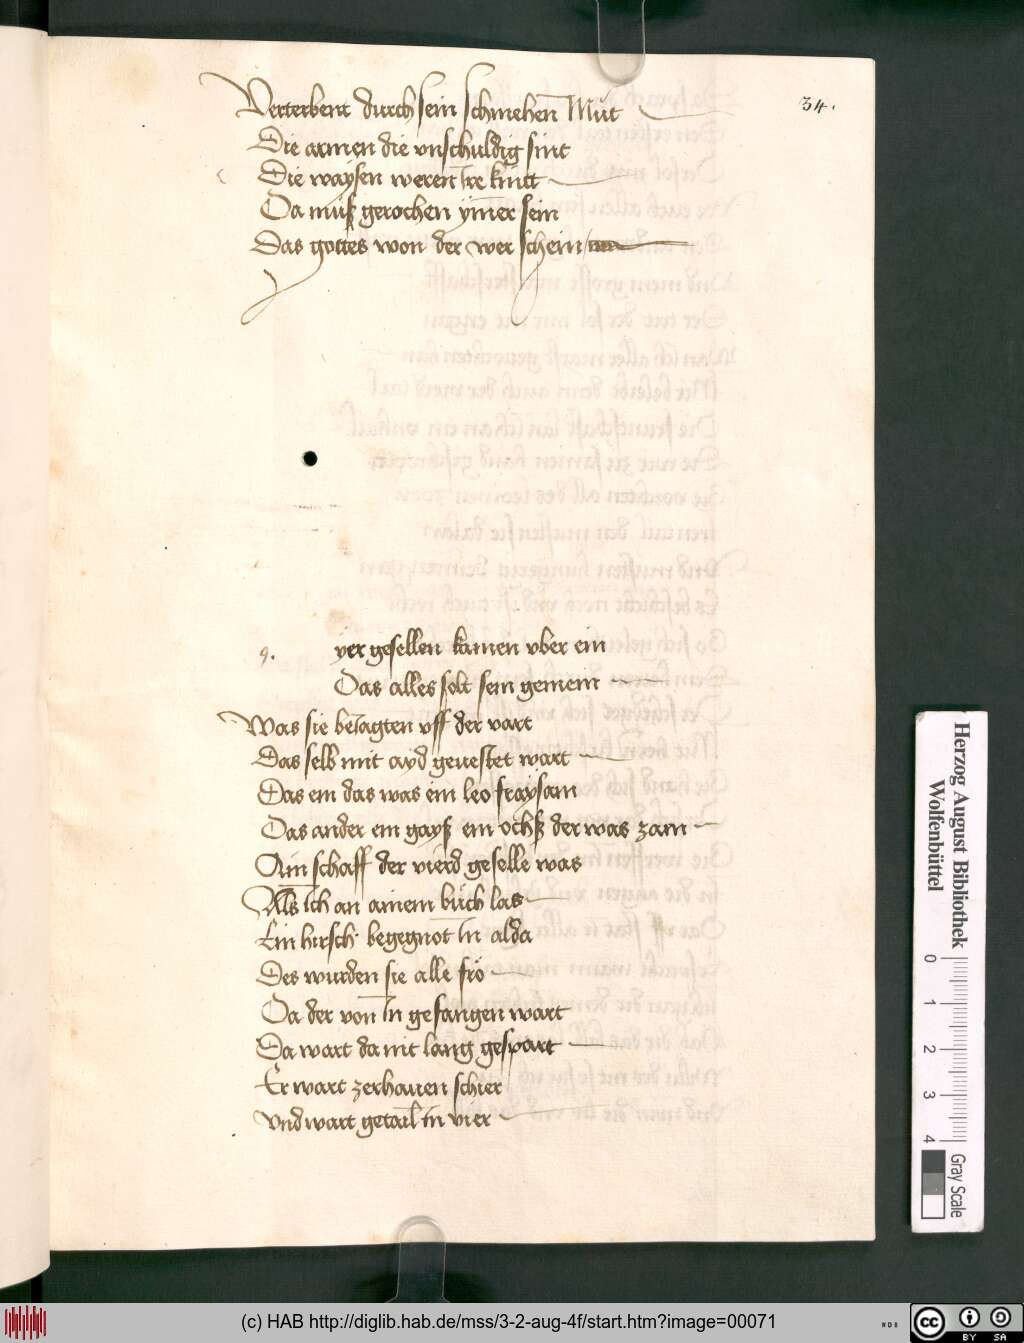 34.
Verterbent durch sein schmehen Mut
Die armen die vnschuldig sint
Die waysen weren ir kintt
Da muß gerochen ymer sein
Das gottes won der wer schein
9.
yer gesellen kamen vber ein
Das alles solt sein gemein
Was sie betagten vff der vart
Das selb mit ayd geuestet wart
Das ein das was ein leo fraysam
Das ander ein gayß ein ochß der was zam
Ain schaff der vierd geselle was
Alls ich an ainem buch las
Ein hirsch begegnot in alda
Des wurden sie alle fro
Da der von in gefangen wart
Da wart da nit lang gespart
Er wart zerhauen schier
vnd wart getail in vier
Herzog August Bibliothek
Wolfenbüttel
0 1 2 3 4
Gray Scale
(c) HAB http://diglib.hab.de/mss/3-2-aug-4f/start.htm?image=00071
cc BY SA